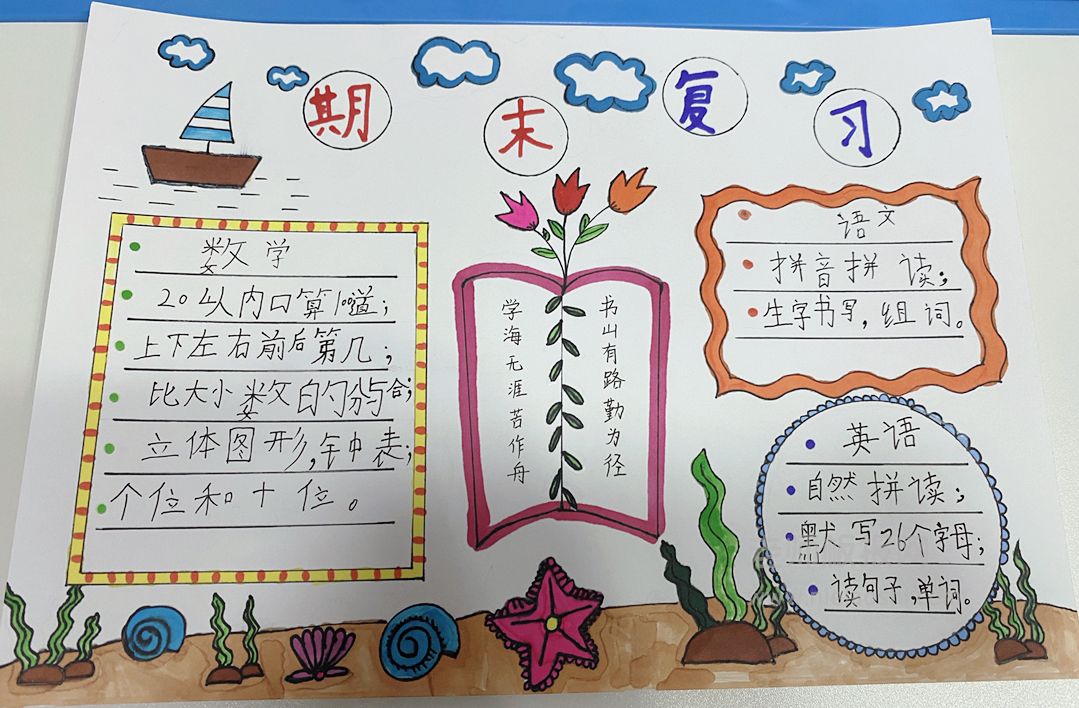 期末复习
数学
20以内口算100道;
上下左右前后第几;
比大小数的分与合;
立体图形,钟表;
个位和十位。
书山有路勤为径
学海无涯苦作舟
语文
拼音拼读;
生字书写,组词。
英语
自然拼读;
默写26个字母;
读句子,单词。